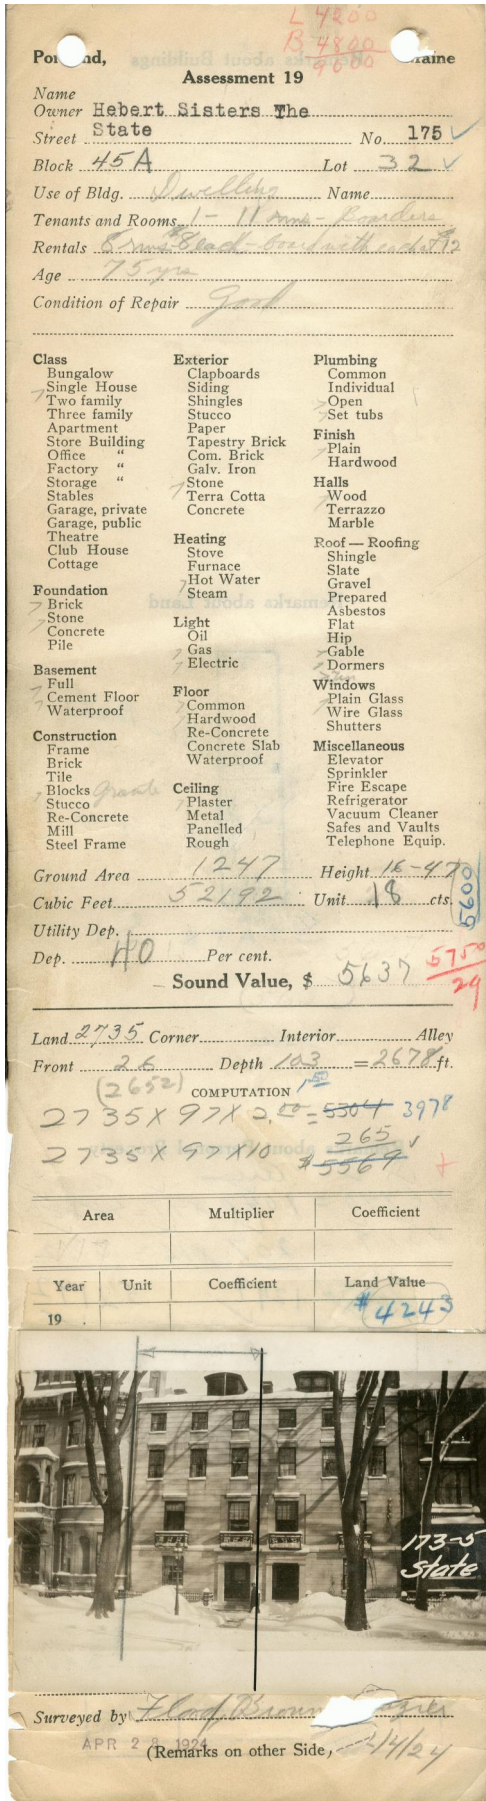 L 4200
B 4800
9000
Portland, Maine
Assessment 19
Name
Owner Hebert Sisters The
Street State No. 175 ✓
Block 45A Lot 32 ✓
Use of Bldg. Dwelling Name
Tenants and Rooms 1 - 11 rms - Boarders
Rentals 8 rms $8 each - board with each $12
Age 75 yrs
Condition of Repair Good
Class
Bungalow
Single House
Two family
Three family
Apartment
Store Building
Office "
Factory "
Storage "
Stables
Garage, private
Garage, public
Theatre
Club House
Cottage
Foundation
Brick
Stone
Concrete
Pile
Basement
Full
Cement Floor
Waterproof
Construction
Frame
Brick
Tile
Blocks granite
Stucco
Re-Concrete
Mill
Steel Frame
Exterior
Clapboards
Siding
Shingles
Stucco
Paper
Tapestry Brick
Com. Brick
Galv. Iron
Stone
Terra Cotta
Concrete
Heating
Stove
Furnace
Hot Water
Steam
Light
Oil
Gas
Electric
Floor
Common
Hardwood
Re-Concrete
Concrete Slab
Waterproof
Ceiling
Plaster
Metal
Panelled
Rough
Plumbing
Common
Individual
Open
Set tubs
Finish
Plain
Hardwood
Halls
Wood
Terrazzo
Marble
Roof — Roofing
Shingle
Slate
Gravel
Prepared
Asbestos
Flat
Hip
Gable
Dormers
Windows
Plain Glass
Wire Glass
Shutters
Miscellaneous
Elevator
Sprinkler
Fire Escape
Refrigerator
Vacuum Cleaner
Safes and Vaults
Telephone Equip.
Ground Area 1247 Height 16-47
Cubic Feet 52192 Unit 18 cts.
5600
Utility Dep.
Dep. 40 Per cent.
Sound Value, $ 5637
5750
29
Land 2735 Corner Interior Alley
Front 26 Depth 103 = 2678 ft.
(2652) COMPUTATION 1.50
2735 X 97 X 2.00 = 5304 3978
265 ✓
2735 X 97 X 10 $ 5569
Area Multiplier Coefficient
Year Unit Coefficient Land Value
19 $4243
173-5
State
Surveyed by Floyd Brown
APR 28 1924
(Remarks on other Side) /4/24